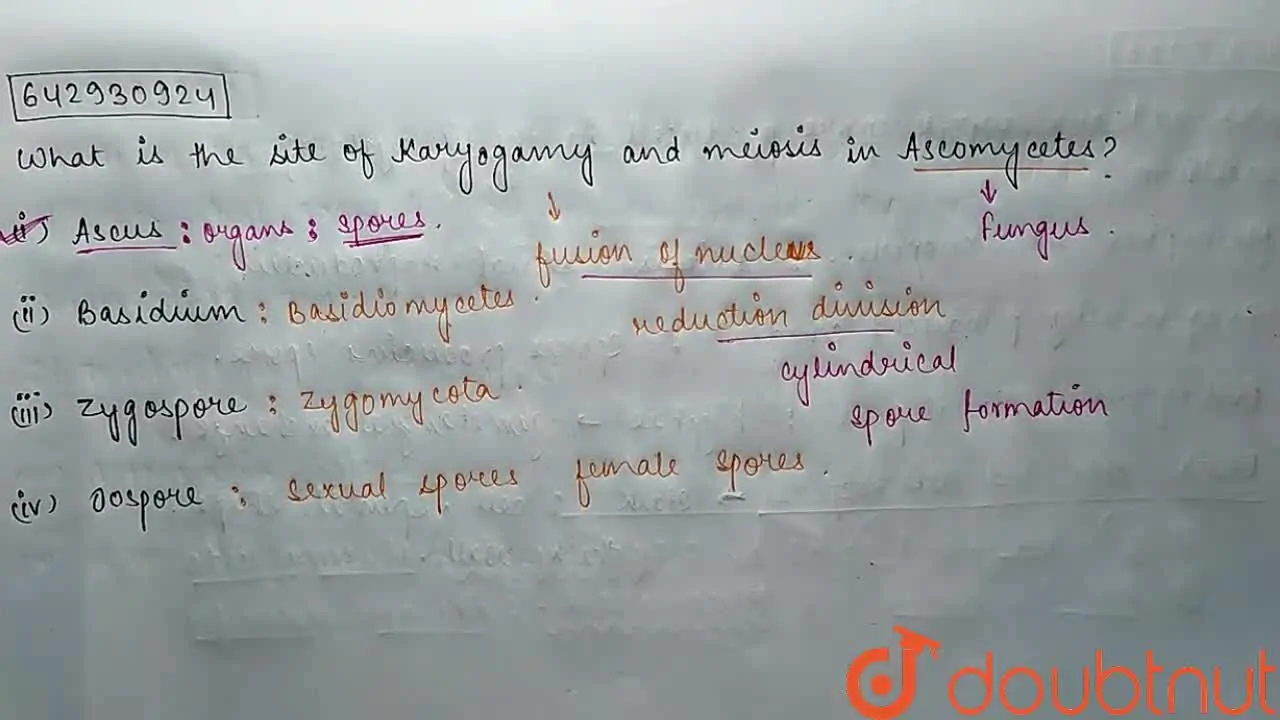 642930924
What is the site of Karyogamy and meiosis in Ascomycetes?
i) Ascus : organs : spores.
fusion of nucleus.
fungus.
(ii) Basidium : Basidiomycetes.
reduction division
cylindrical
(iii) Zygospore : Zygomycota.
spore formation
(iv) Oospore : sexual spores female spores.
doubtnut